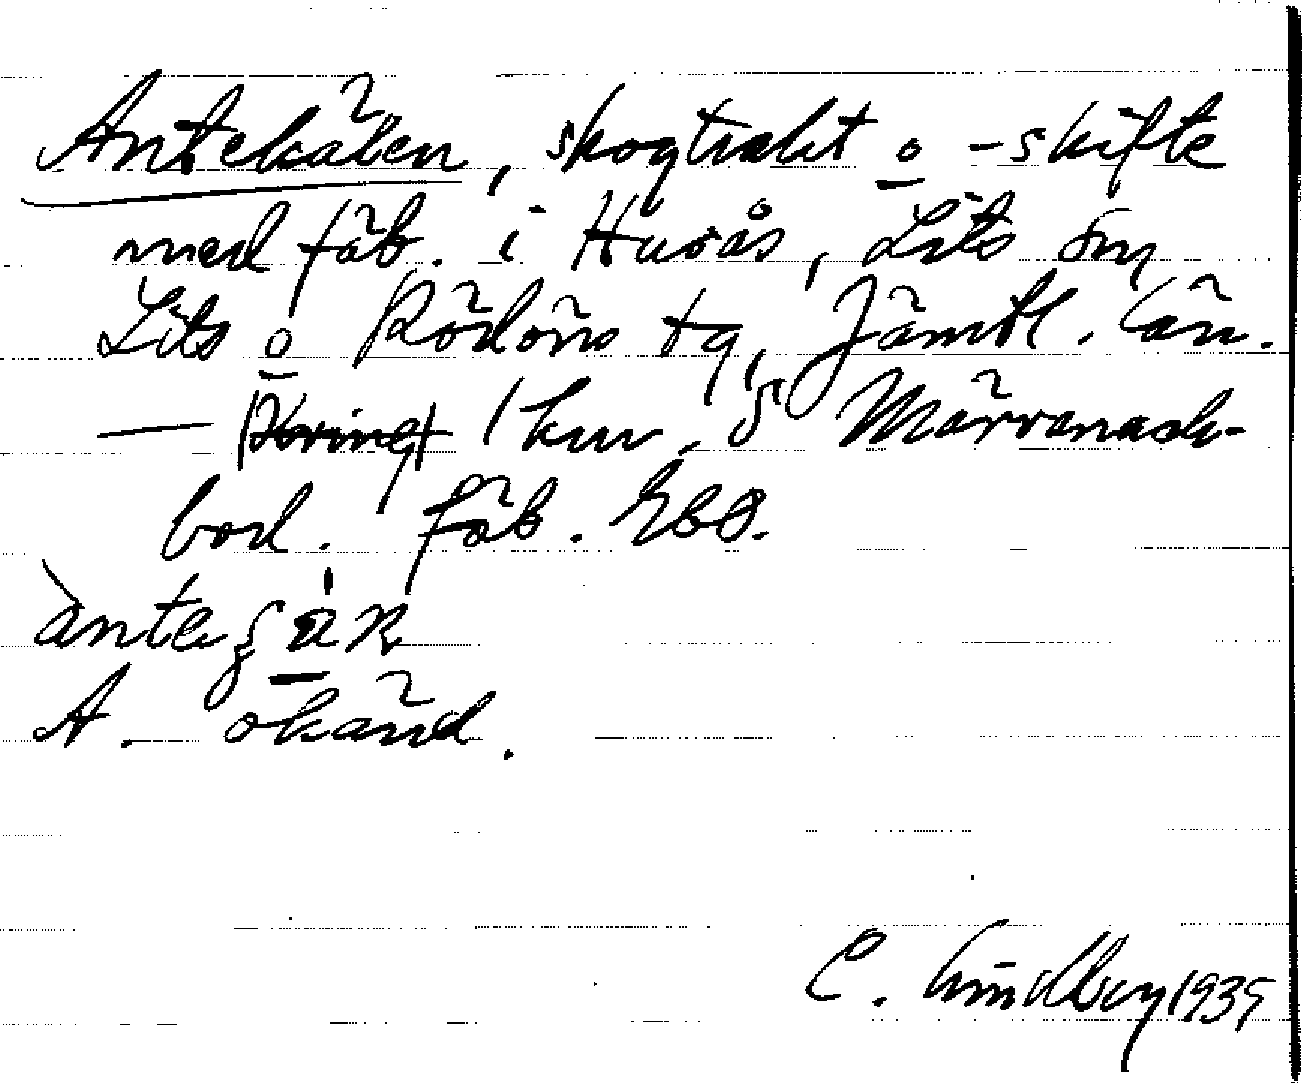 Antekälen, skogtrakt o -skifte
med fäb. i Huvås, Lits sn
Lits o Rödöns tg, Jämtl. län.
— (Kring) 1 km. S Märranäck-
bod. fäb.
A. okänd.
C. Lindberg 1935